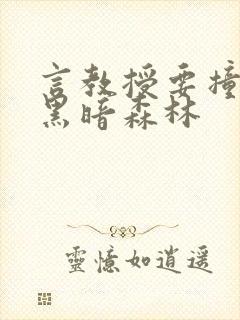 言教授要撞
黑暗森林
靈憶如逍遥